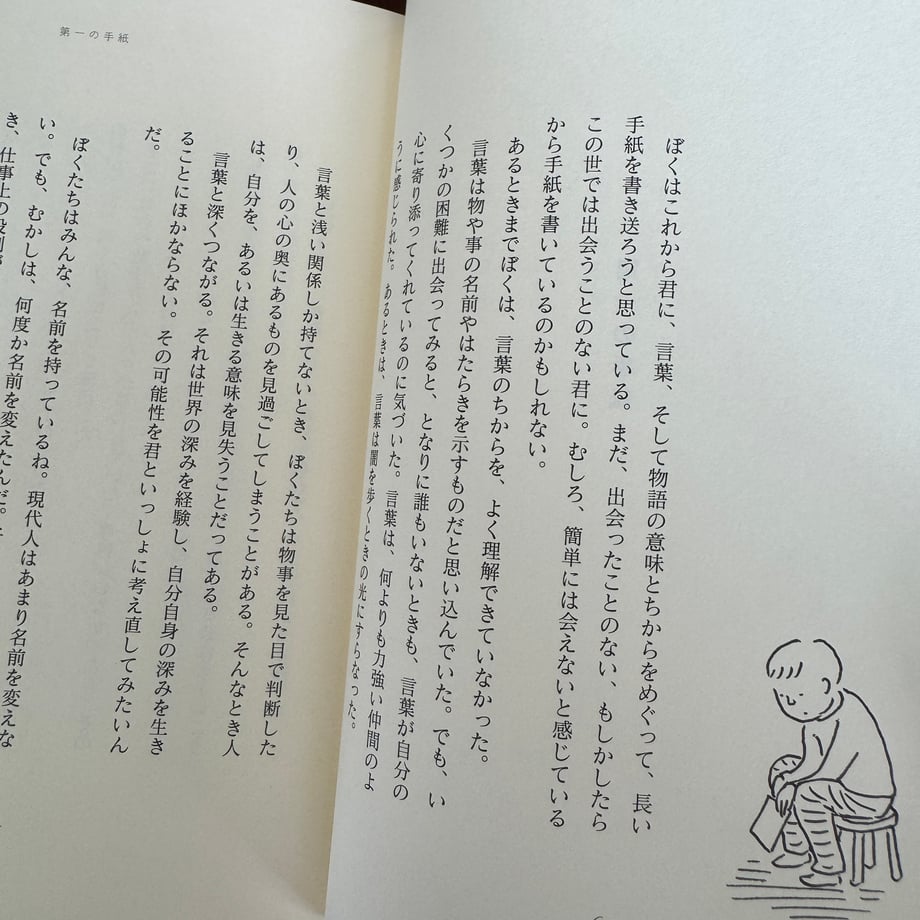 ぼくはこれから君に、言葉、そして物語の意味とちからをめぐって、長い
手紙を書き送ろうと思っている。まだ、出会ったことのない、もしかしたら
この世では出会うことのない君に。むしろ、簡単には会えないと感じている
から手紙を書いているのかもしれない。
あるときまでぼくは、言葉のちからを、よく理解できていなかった。
言葉は物や事の名前やはたらきを示すものだと思い込んでいた。でも、い
くつかの困難に出会ってみると、となりに誰もいないときも、言葉が自分の
心に寄り添ってくれているのに気づいた。言葉は、何よりも力強い仲間のよ
うに感じられた。あるときは、言葉は闇を歩くときの光にすらなった。
第一の手紙
言葉と浅い関係しか持てないとき、ぼくたちは物事を見た目で判断した
り、人の心の奥にあるものを見過ごしてしまうことがある。そんなとき人
は、自分を、あるいは生きる意味を見失うことだってある。
言葉と深くつながる。それは世界の深みを経験し、自分自身の深みを生き
ることにほかならない。その可能性を君といっしょに考え直してみたいん
だ。
ぼくたちはみんな、名前を持っているね。現代人はあまり名前を変えな
い。でも、むかしは、何度か名前を変えたんだ。
き、仕事上の役割